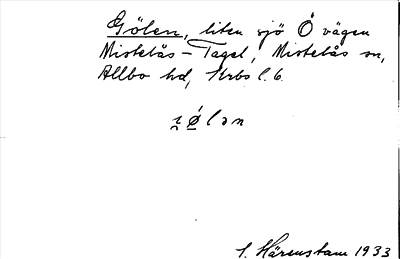 Gölen, liten sjö Ö vägen
Mistelås – Tagel, Mistelås sn,
Allbo hd, Krbs l. 6.
Härenstam 1933